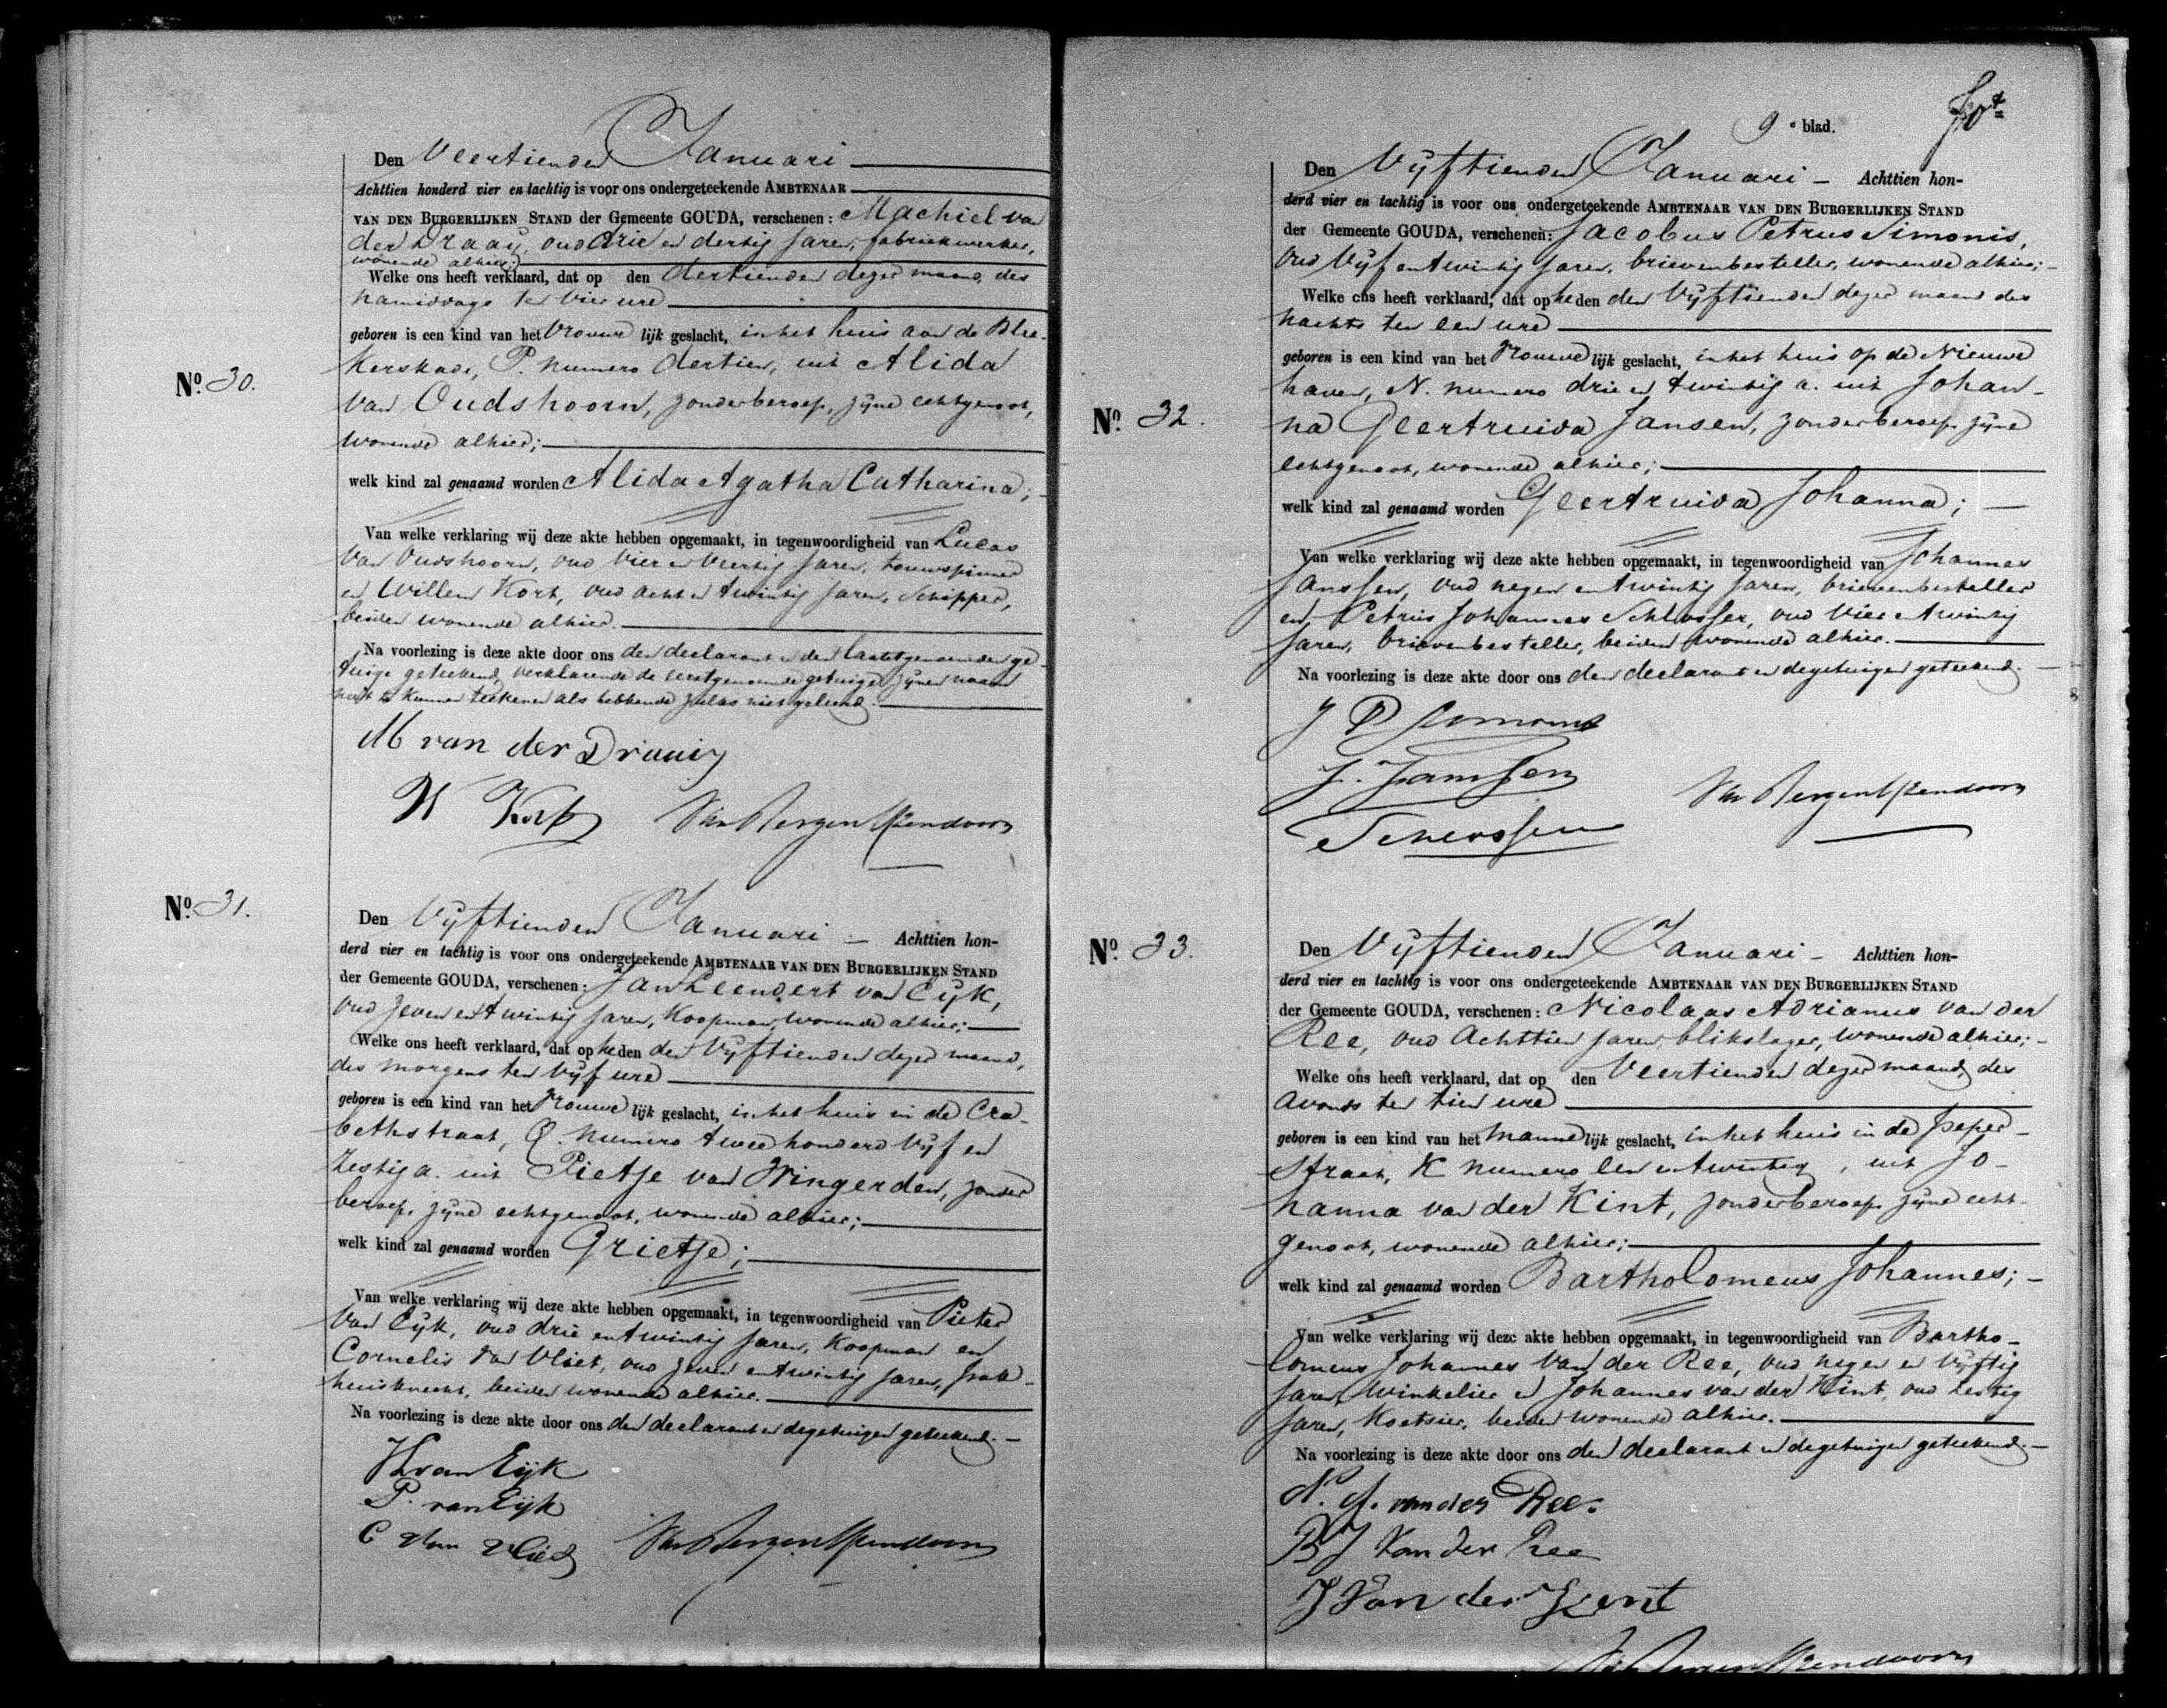 Den Veertienden Januari
Achttien honderd vier en tachtig is voor ons ondergeteekende AMBTENAAR
VAN DEN BURGERLIJKEN STAND der Gemeente GOUDA, verschenen: Machiel van
der Draay, oud drie en dertig jaren, fabriekwerker,
wonende alhier;
Welke ons heeft verklaard, dat op den dertienden dezer maand, des
namiddags ten vier ure
geboren is een kind van het vrouwe lijk geslacht, in het huis aan de Blee-
kerskade, P. numero dertien, uit Alida
No. 30.
van Oudshoorn, zonder beroep, zijne echtgenoot,
wonende alhier;
welk kind zal genaamd worden Alida Agatha Catharina;
Van welke verklaring wij deze akte hebben opgemaakt, in tegenwoordigheid van Lucas
van Oudshoorn, oud vier en veertig jaren, touwspinner
en Willem Kort, oud acht en twintig jaren, schipper,
beiden wonende alhier.
Na voorlezing is deze akte door ons den declarant en den laatstgenoemden ge-
tuige geteekend, verklarende de eerstgenoemde getuige zijnen naam
niet te kunnen teekenen als hebbende zulks niet geleerd.
M van der Draaij
W Kort Van Bergen IJzendoorn
No. 31.
Den Vijftienden Januari – Achttien hon-
derd vier en tachtig is voor ons ondergeteekende AMBTENAAR VAN DEN BURGERLIJKEN STAND
der Gemeente GOUDA, verschenen: Jan Leendert van Eijk,
oud zeven en twintig jaren, Koopman, wonende alhier;
Welke ons heeft verklaard, dat op heden den Vijftienden dezer maand,
des morgens ten vijf ure
geboren is een kind van het vrouwe lijk geslacht, in het huis in de Cra-
bethstraat, Q. numero twee honderd vijf en
zestig a. uit Pietje van Wingerden, zonder
beroep, zijne echtgenoot, wonende alhier;
welk kind zal genaamd worden Grietje;
Van welke verklaring wij deze akte hebben opgemaakt, in tegenwoordigheid van Pieter
van Eijk, oud drie en twintig jaren, Koopman en
Cornelis van Vliet, oud zeven en twintig jaren, pak-
huisknecht, beiden wonende alhier.
Na voorlezing is deze akte door ons den declarant en de getuigen geteekend. –
van Eijk
P. van Eijk
C van Vliet Van Bergen IJzendoorn
9e blad.
Den Vijftienden Januari – Achttien hon-
derd vier en tachtig is voor ons ondergeteekende AMBTENAAR VAN DEN BURGERLIJKEN STAND
der Gemeente GOUDA, verschenen: Jacobus Petrus Simonis,
oud vijf en twintig jaren, brievenbesteller, wonende alhier; –
Welke ons heeft verklaard, dat op heden den Vijftienden dezer maand des
nachts ten een ure
geboren is een kind van het vrouwe lijk geslacht, in het huis op de Nieuwe
haven, N. numero drie en twintig a. uit Johan-
No. 32.
na Geertruida Jansen, zonder beroep zijne
echtgenoot, wonende alhier;
welk kind zal genaamd worden Geertruida Johanna; –
Van welke verklaring wij deze akte hebben opgemaakt, in tegenwoordigheid van Johannes
Janssen, oud negen en twintig jaren, brievenbesteller
en Petrus Johannes Schlosser, oud vier en twintig
jaren, brievenbesteller, beiden wonende alhier.
Na voorlezing is deze akte door ons den declarant en de getuigen geteekend. –
J P Simonis
J. Janssen
Van Bergen IJzendoorn
No. 33.
Den Vijftienden Januari – Achttien hon-
derd vier en tachtig is voor ons ondergeteekende AMBTENAAR VAN DEN BURGERLIJKEN STAND
der Gemeente GOUDA, verschenen: Nicolaas Adrianus van der
Ree, oud achttien jaren, blikslager, wonende alhier; –
Welke ons heeft verklaard, dat op den Veertienden dezer maand, des
avonds ten tien ure
geboren is een kind van het manne lijk geslacht, in het huis in de Peper-
straat, K numero een en twintig, uit Jo-
hanna van der Kint, zonder beroep zijne echt-
genoot, wonende alhier;
welk kind zal genaamd worden Bartholomeus Johannes; –
Van welke verklaring wij deze akte hebben opgemaakt, in tegenwoordigheid van Bartho-
lomeus Johannes van der Ree, oud negen en vijftig
jaren, winkelier en Johannes van der Kint, oud zestig
jaren, Koetsier, beiden wonende alhier.
Na voorlezing is deze akte door ons den declarant en de getuigen geteekend. –
N. A. van der Ree.
B J Van der Ree
J Van der Kint
Van Bergen IJzendoorn